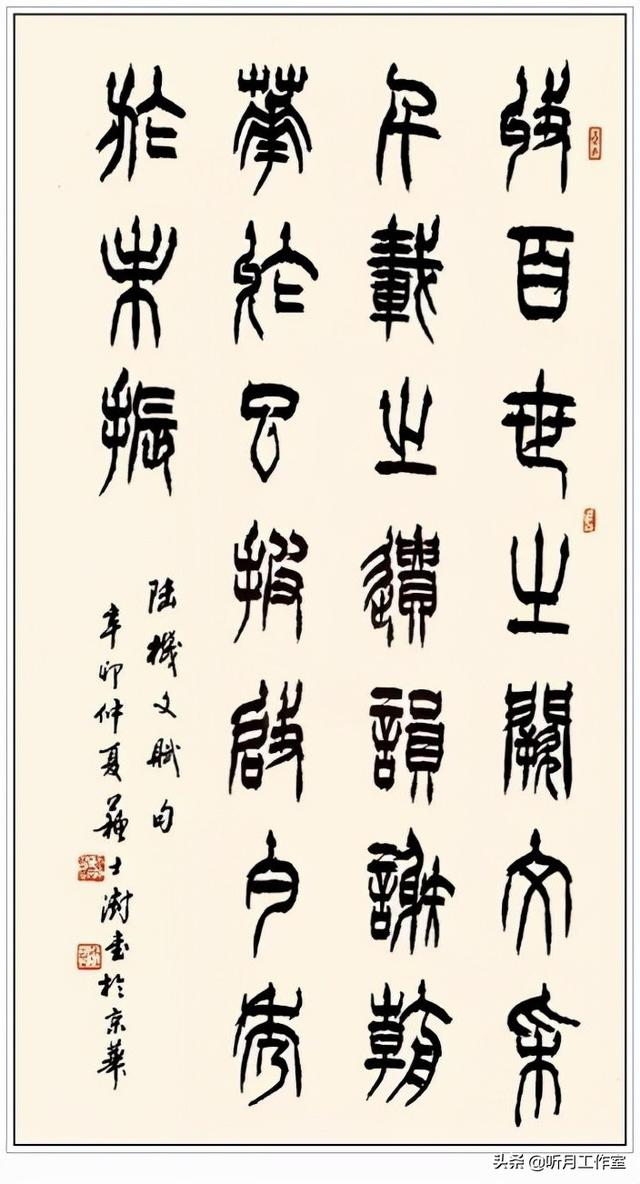 收百世之闕文采
千載之遺韻謝朝
華於已披啟夕秀
於未振
陸機文賦句
辛卯仲夏蘇士澍書於京華
头条 @听月工作室